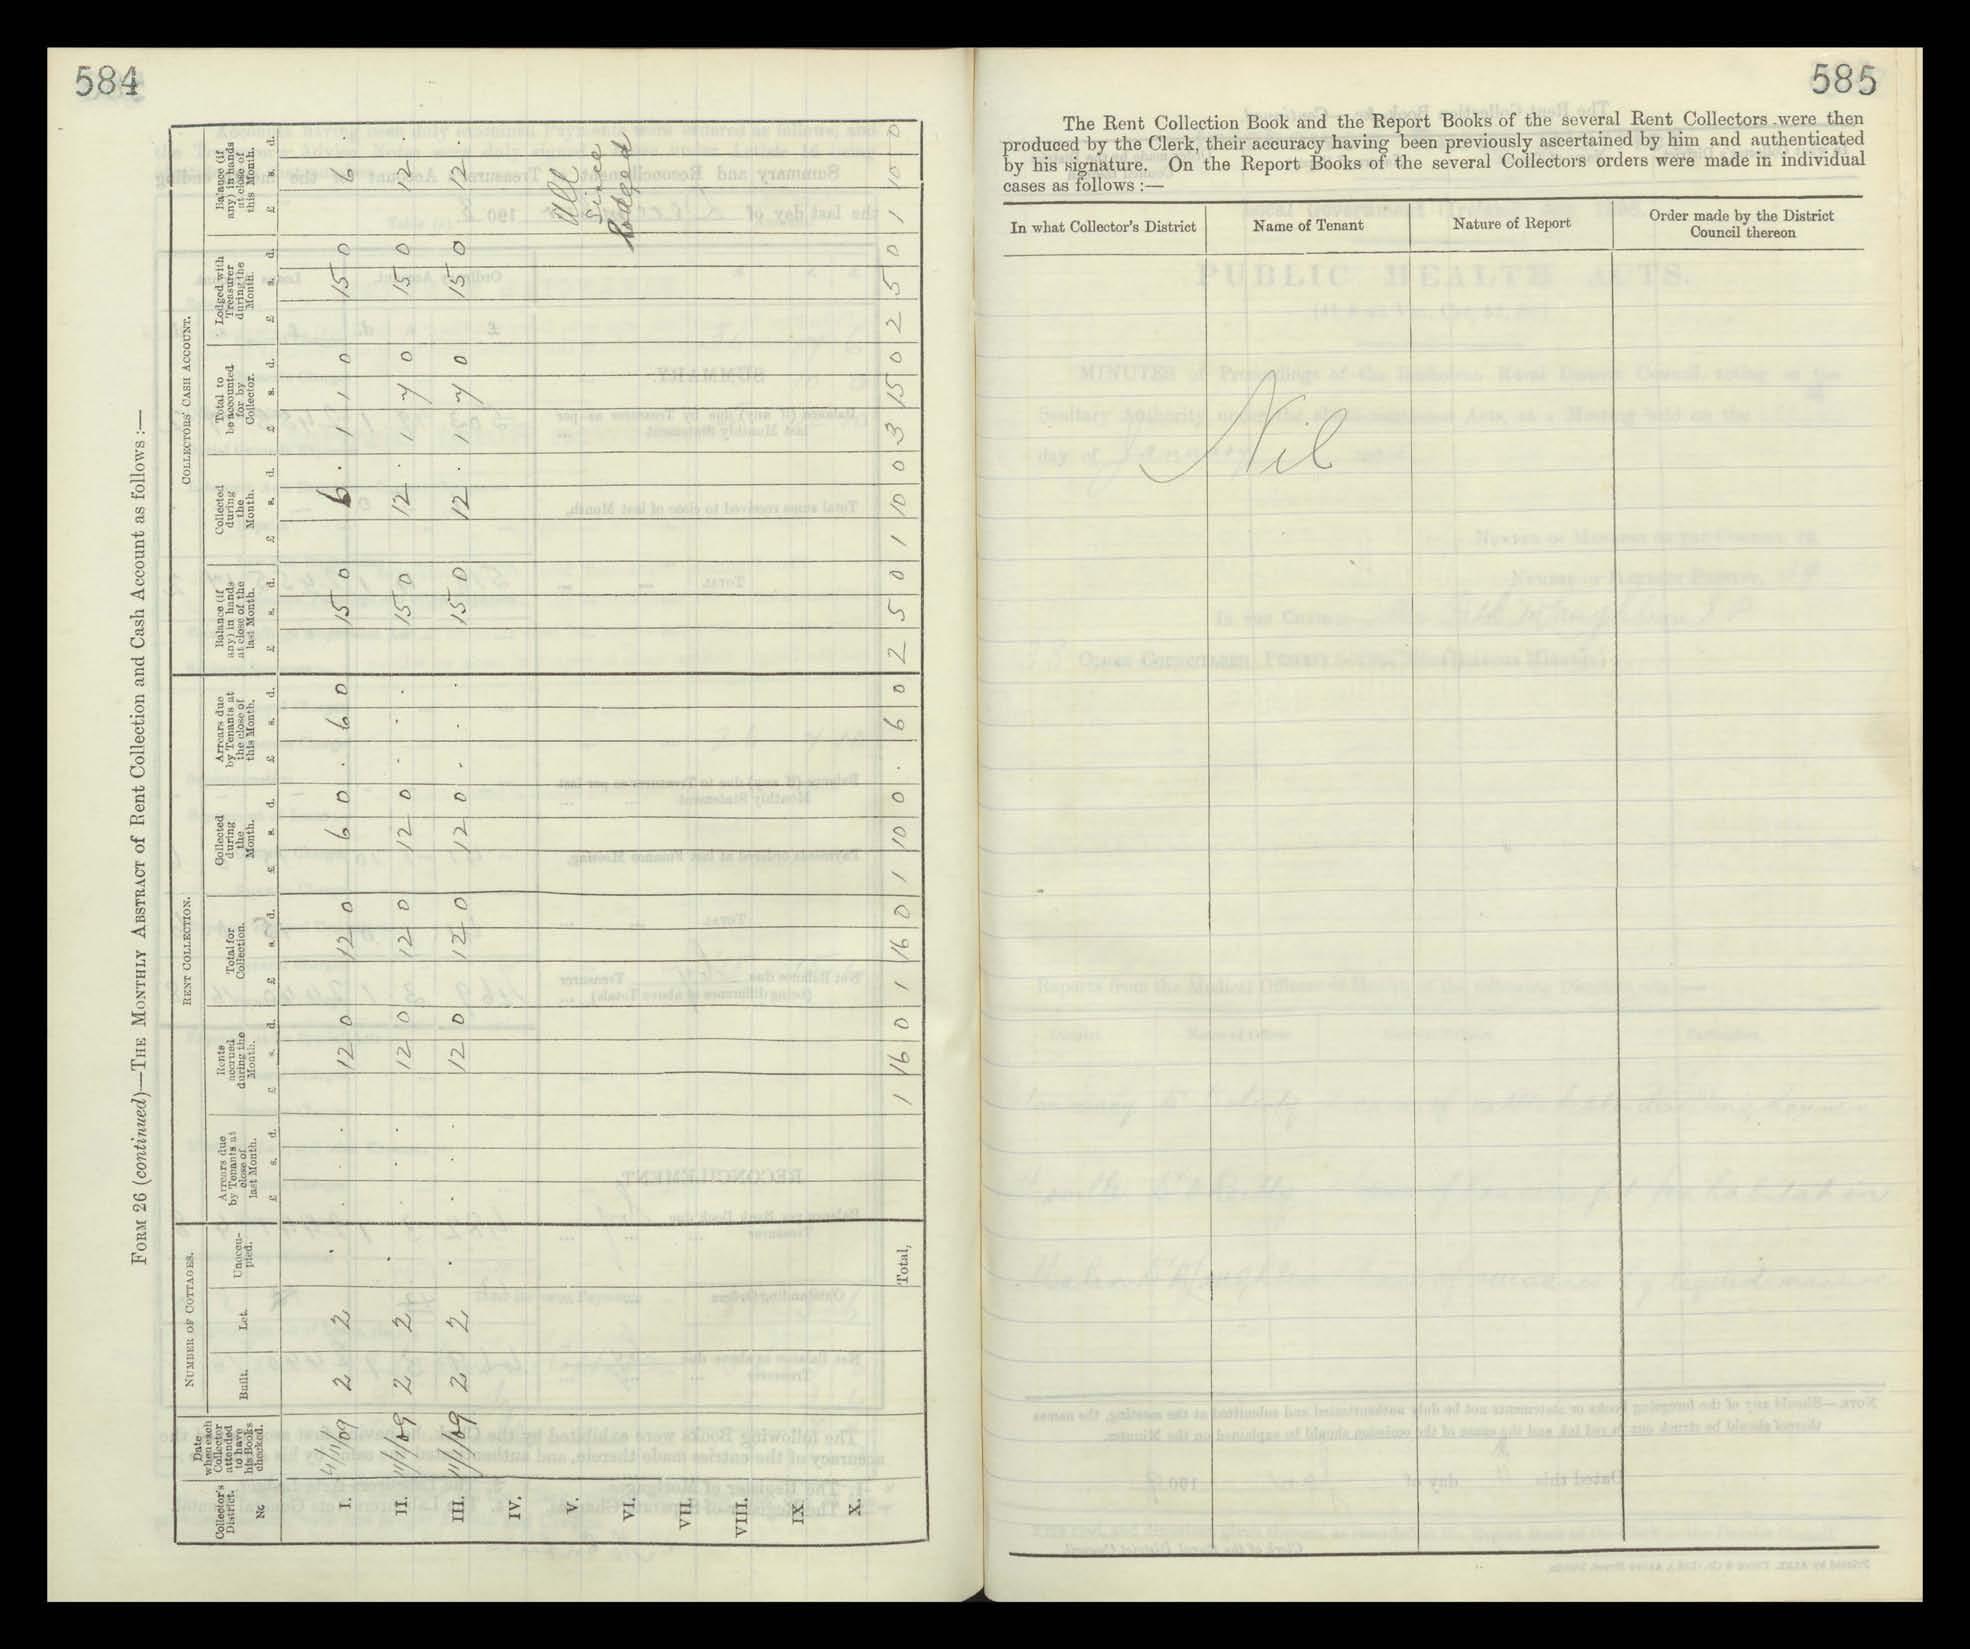 584
FORM 26 (continued)—THE MONTHLY ABSTRACT of Rent Collection and Cash Account as follows :—
Collector's District. No
Date when each Collector attended to have his Books checked.
NUMBER OF COTTAGES.
Built.
Let.
Unoccupied.
RENT COLLECTION.
Arrears due by Tenants at close of last Month. £ s. d.
Rents accrued during the Month. £ s. d.
Total for Collection. £ s. d.
Collected during the Month. £ s. d.
Arrears due by Tenants at the close of this Month. £ s. d.
COLLECTORS' CASH ACCOUNT.
Balance (if any) in hands at close of the last Month. £ s. d.
Collected during the Month. £ s. d.
Total to be accounted for by Collector. £ s. d.
Lodged with Treasurer during the Month. £ s. d.
Balance (if any) in hands at close of this Month. £ s. d.
I. 2 2 . . . . 12 0 12 0 6 0 . 6 0 15 0 6 . 1 1 0 15 0 6 .
II. 11/1/09 2 2 . . . . 12 0 12 0 12 0 . . . 15 0 12 . 1 7 0 15 0 12
III. 11/1/09 2 2 . . . . 12 0 12 0 12 0 . . . 15 0 12 . 1 7 0 15 0 12 .
IV.
V. All
VI. Since
VII. lodged
VIII.
IX
X.
Total, 1 16 0 1 16 0 1 10 0 . 6 0 2 5 0 1 10 0 3 15 0 2 5 0 1 10 0
585
The Rent Collection Book and the Report Books of the several Rent Collectors were then
produced by the Clerk, their accuracy having been previously ascertained by him and authenticated
by his signature. On the Report Books of the several Collectors orders were made in individual
cases as follows :—
In what Collector's District
Name of Tenant
Nature of Report
Order made by the District
Council thereon
Nil